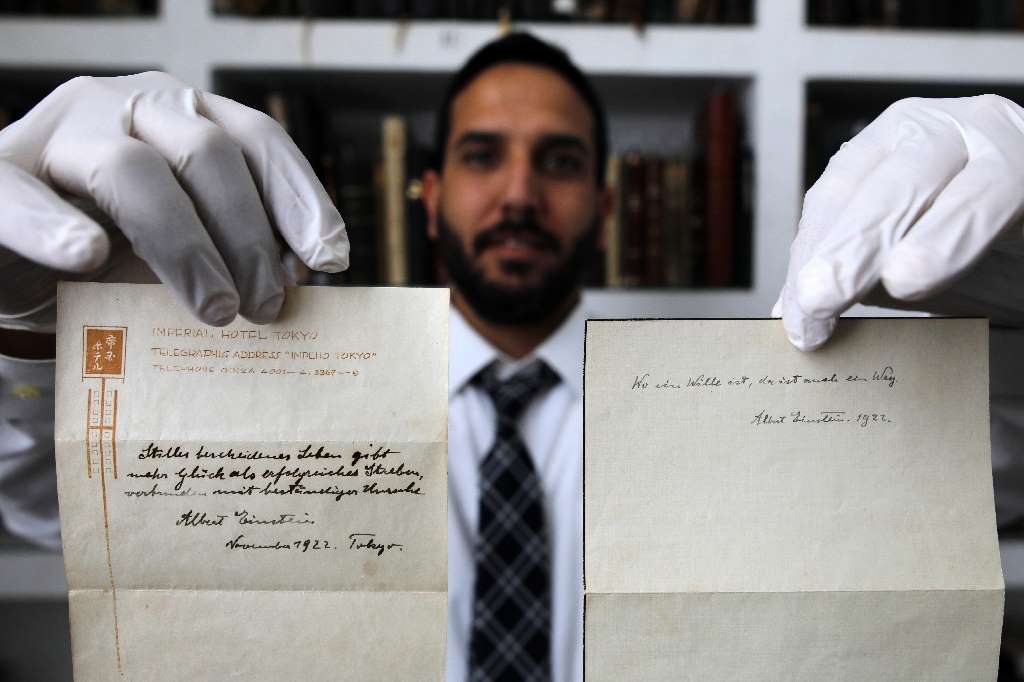 帝国
ホテル
IMPERIAL HOTEL TOKYO
TELEGRAPHIC ADDRESS "IMPEHO TOKYO"
TELEPHONE GINZA
Stilles bescheidenes Leben gibt
mehr Glück als erfolgreiches Streben,
verbunden mit beständiger Unruhe
Albert Einstein.
November 1922. Tokyo.
Wo ein Wille ist, da ist auch ein Weg.
Albert Einstein. 1922.